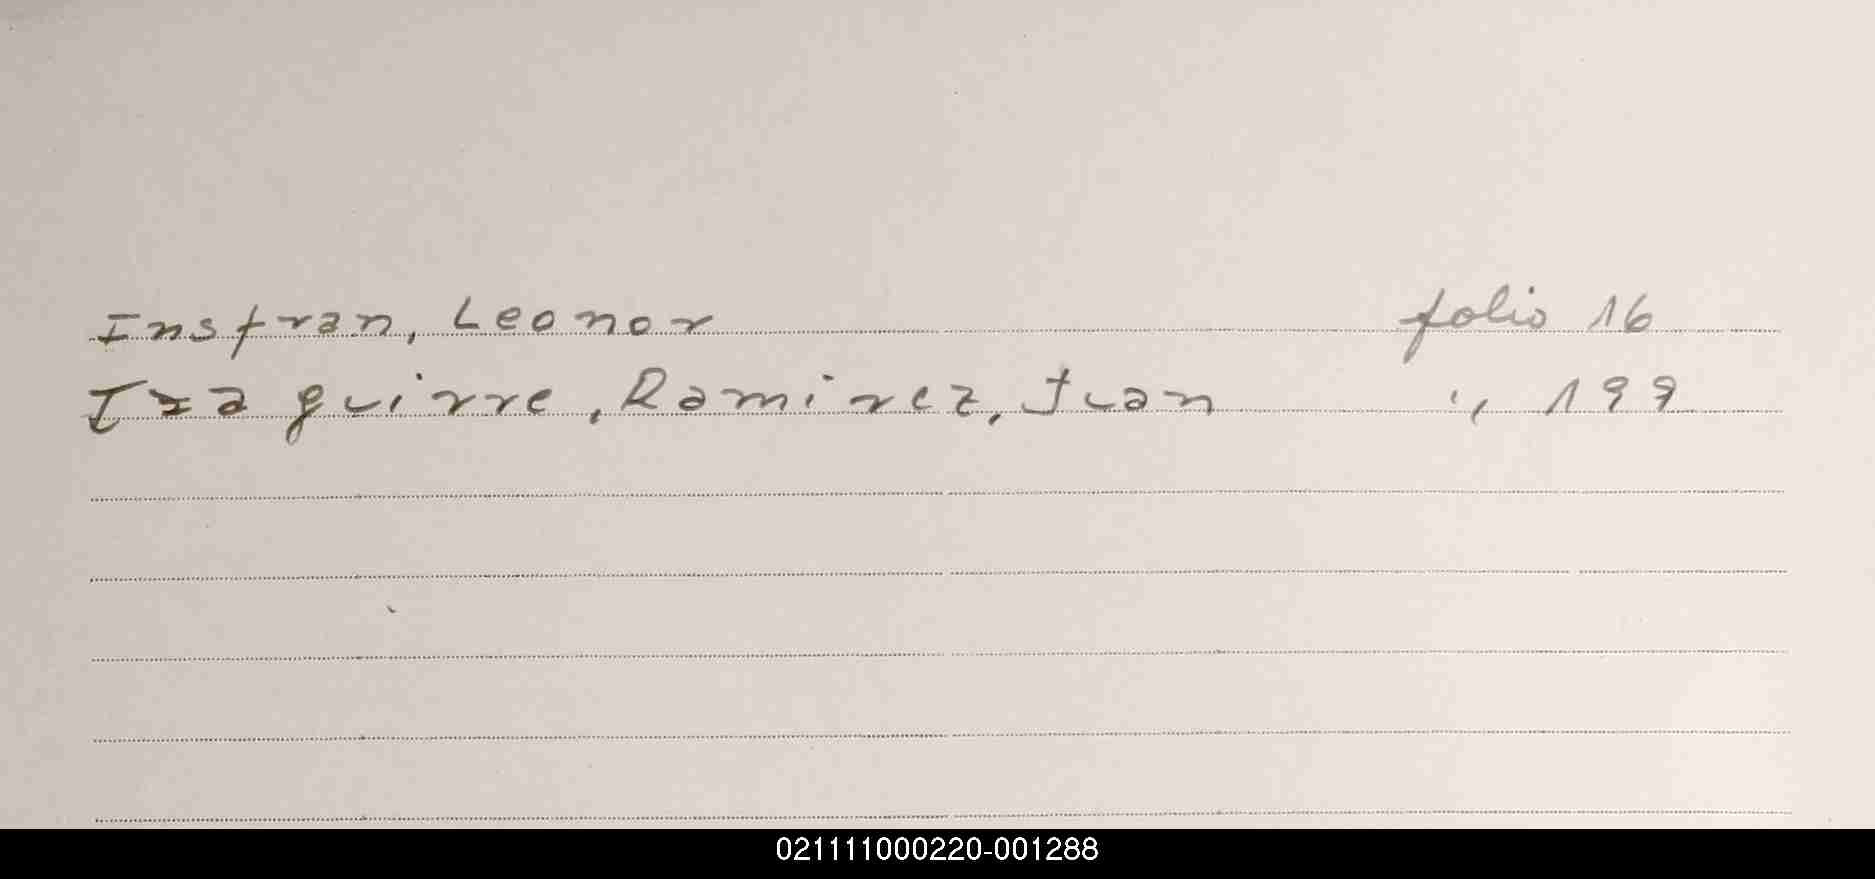 Insfran, Leonor folio 16
Izaguirre, Ramirez, Juan " 199
021111000220-001288